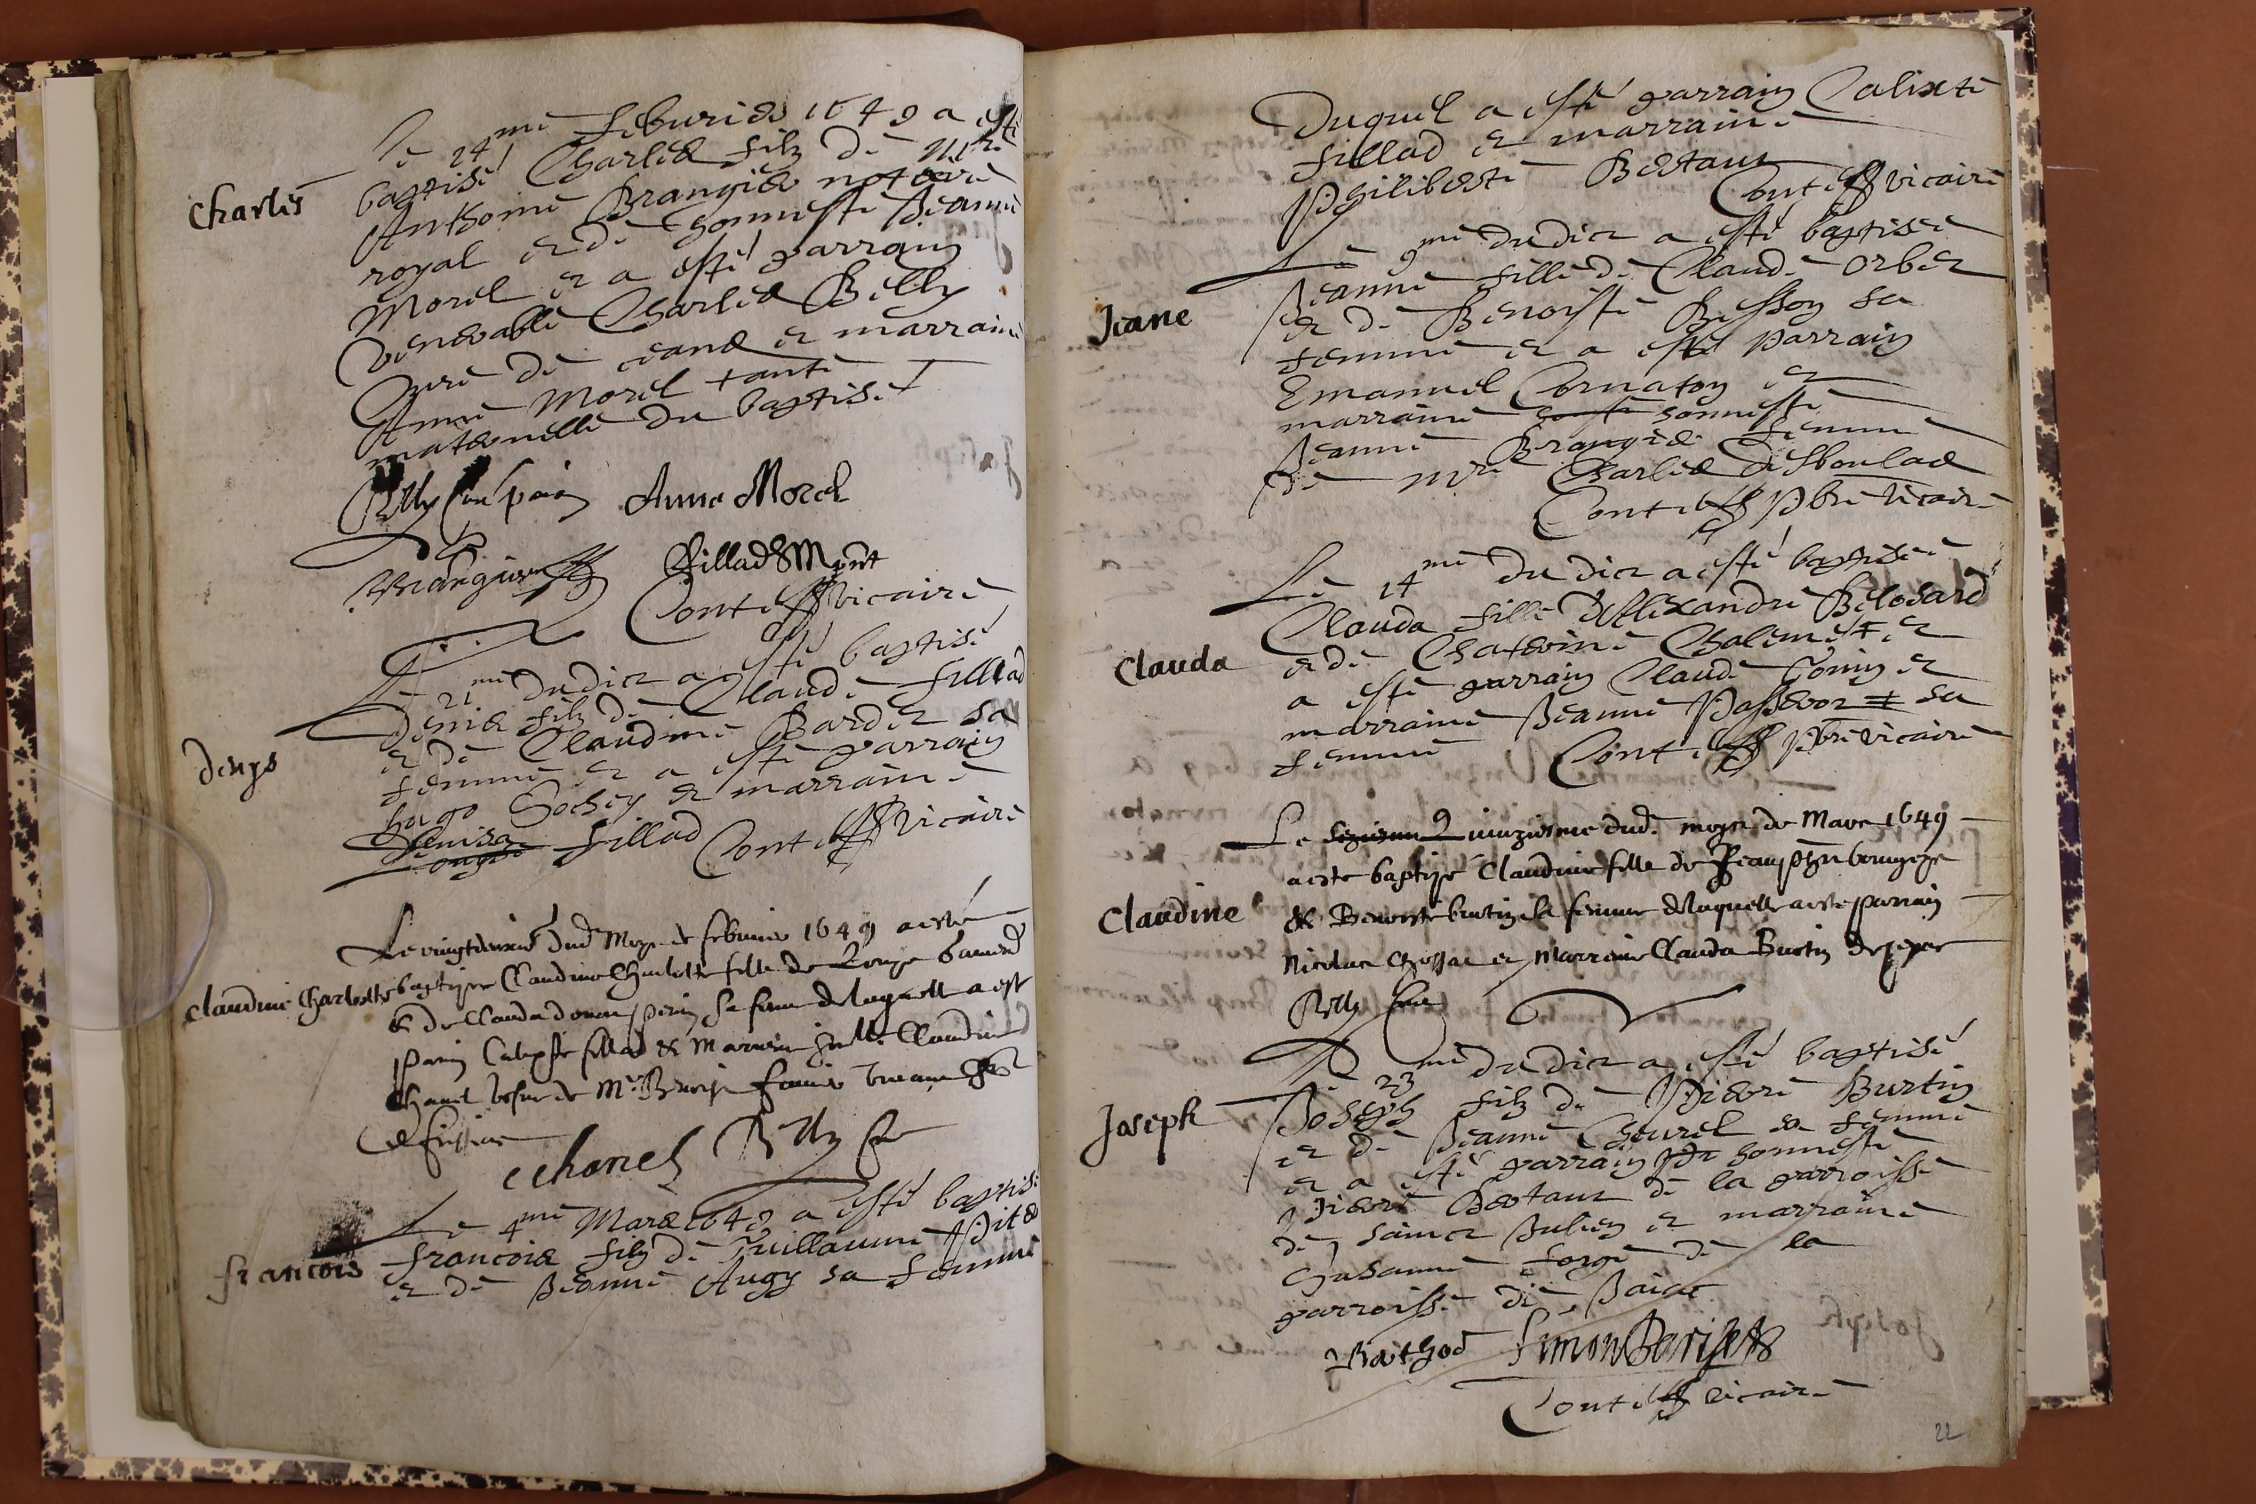 Charles
Le 14me feburier 1649 a esté
baptisé Charles filz de Mre
Anthoine Brangier notere
royal et de honneste Jeanne
Morel et a esté parrain
Venerable Charles Billy
Curé de ceans et marraine
Anne Morel tante
maternelle du baptisé
Billy Anne Morel
Brangier Fillad
Conte vicaire
Denys
Le 21me dudict a esté baptisé
Denis filz de Claude Fillad
et de Claudine Bardet sa
femme et a esté parrain
hugo Gochey et marraine
Denisa Fillad Conte vicaire
Claudine Charlotte
Le vingtdeuxie dud Moys de febvrier 1649 a esté
baptisee Claudine Charlotte fille de Louys
& de Clauda sa feme de laquelle a est
parin Calixte fillad & Marraine Claudine
Chanel vefve de Mr
de
Chanel Billy
francois
Le 4me Mars 1649 a esté baptisé
francois filz de Guillaume Pite
et de Jeanne Augy sa femme
Duquel a esté parrain Calixte
fillad et marraine
Philiberte Bertaut
Conte vicaire
Jeane
Le 9me dudict a esté baptisée
Jeanne fille de Claude Orbet
et de Benoiste Besson sa
femme et a esté parrain
Emanuel Cornaton et
marraine honneste
Jeanne Brangier femme
de Mre Charles Desboulas
Conte Pbre Vicaire
Clauda
Le 14me dudict a esté baptisée
Clauda fille d'Allexandre Belosard
et de Chaterine Chalemet et
a esté parrain Claude Gonin et
marraine Jeanne Passerot sa
femme Conte Pbre vicaire
Claudine
Le quinziesme dud. moys de Mars 1649
a esté baptisé Claudine fille de Jean
& Benoiste burtin sa femme de laquelle a esté parrain
Nicolas et Marraine Clauda Burtin
Billy
Joseph
Le 23me dudict a esté baptisé
Joseph filz de Pierre Burtin
et de Jeanne Chevrel sa femme
et a esté parrain honneste
Pierre Bertaut de la parroisse
de sainct Julien et marraine
Susanne forge de la
parroisse de
Simon
Conte vicaire
22